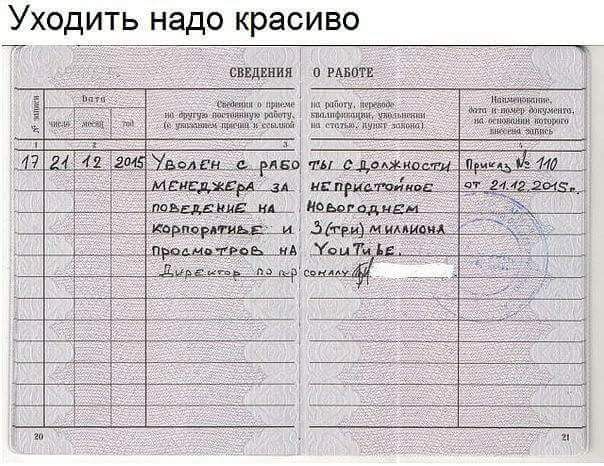 Уходить надо красиво
СВЕДЕНИЯ О РАБОТЕ
№ записи
Дата
число месяц год
Сведения о приеме на работу, переводе
на другую постоянную работу, квалификации, увольнении
(с указанием причин и ссылкой на статью, пункт закона)
Наименование,
дата и номер документа,
на основании которого
внесена запись
1 2 3 4
17 21 12 2015 Уволен с работы с должности Приказ № 110
менеджера за непристойное от 21.12.2015г.
поведение на Новогоднем
корпоративе и 3(три) миллиона
просмотров на YouTube.
Директор по персоналу
20 21